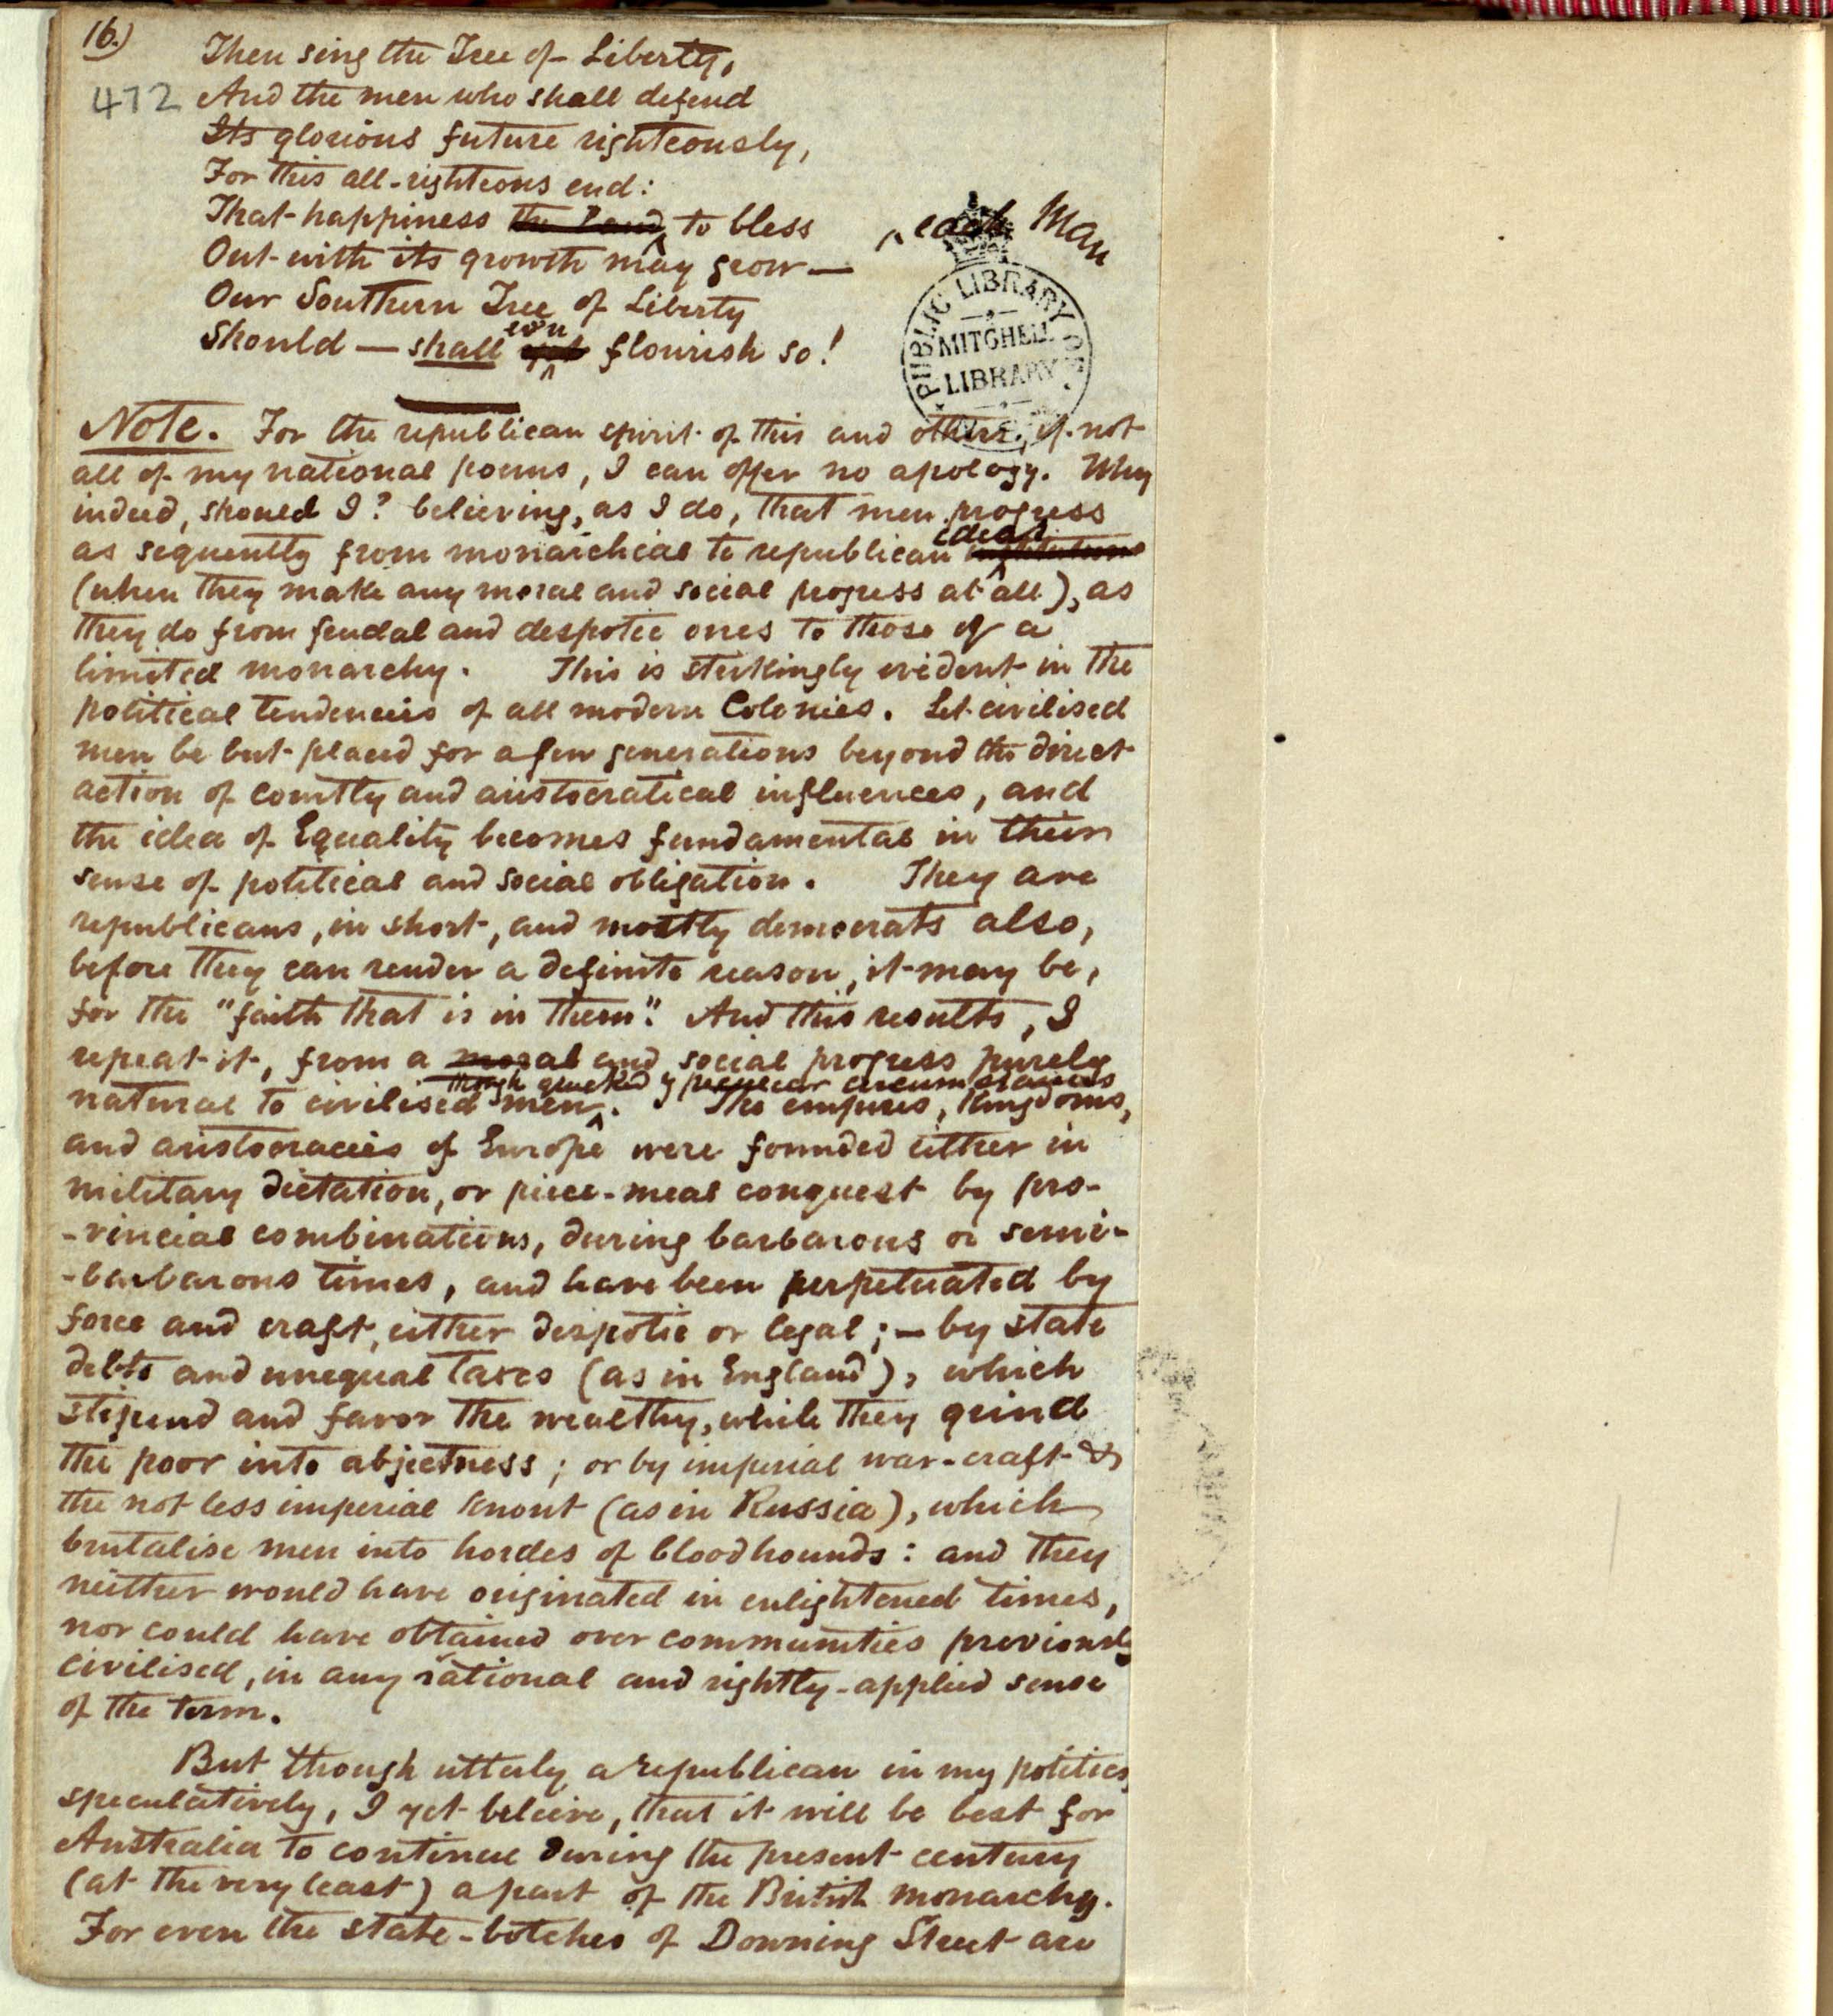 16.)
472
Then sing the Tree of Liberty,
And the men who shall defend
Its glorious future righteously,
For this all-righteous end:
That happiness the Land, to bless ‸ each Man
Out with its growth may grow —
Our Southern Tree of Liberty
Should — shall even flourish so!
PUBLIC LIBRARY OF
MITCHELL
LIBRARY
Note. For the republican spirit of this and others, if not
all of my national poems, I can offer no apology. Why
indeed, should I? believing, as I do, that men progress
ideas
as sequently from monarchical to republican institutions
(when they make any moral and social progress at all), as
they do from feudal and despotic ones to those of a
limited monarchy. This is strikingly evident in the
political tendencies of all modern Colonies. Let civilised
men be but placed for a few generations beyond the direct
action of courtly and aristocratical influences, and
the idea of Equality becomes fundamental in their
sense of political and social obligation. They are
republicans, in short, and mostly democrats also,
before they can render a definite reason, it may be,
for the "faith that is in them". And this results, I
repeat it, from a moral and social progress purely
though quickened by peculiar circumstances
natural to civilised men‸. The empires, Kingdoms,
and aristocracies of Europe were founded either in
military dictation, or piece-meal conquest by pro-
-vincial combinations, during barbarous or semi-
-barbarous times, and have been perpetuated by
force and craft, either despotic or legal; — by state
debts and unequal taxes (as in England), which
stipend and favor the wealthy, while they grind
the poor into abjectness; or by imperial war-craft &
the not less imperial knout (as in Russia), which
brutalise men into hordes of bloodhounds: and they
neither would have originated in enlightened times,
nor could have obtained over communities previously
civilised, in any rational and rightly-applied sense
of the term.
But though utterly a republican in my politics,
speculatively, I yet beleive, that it will be best for
Australia to continue during the present century
(at the very least) a part of the British monarchy.
For even the state-botches of Downing Street are